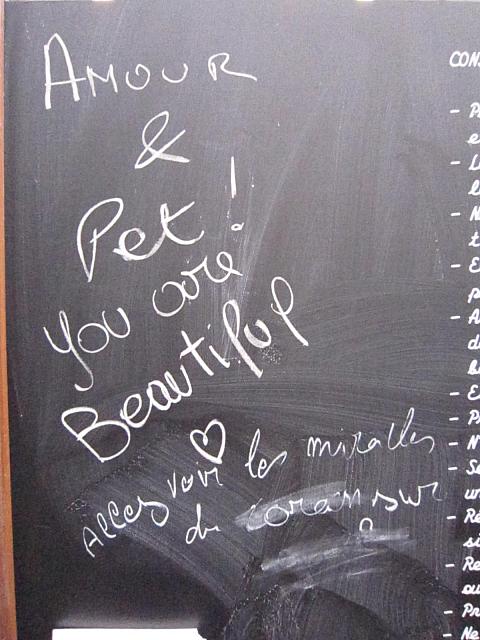 AMOUR
&
Pet !
You are
Beautiful
Allez voir les miracles
du coran sur
CON
- P
e
- L
l
- N
t
- E
p
- A
d
- E
- P
- N'
- Se
un
- Ré
si
- Re
ou
- Pr
- Ne